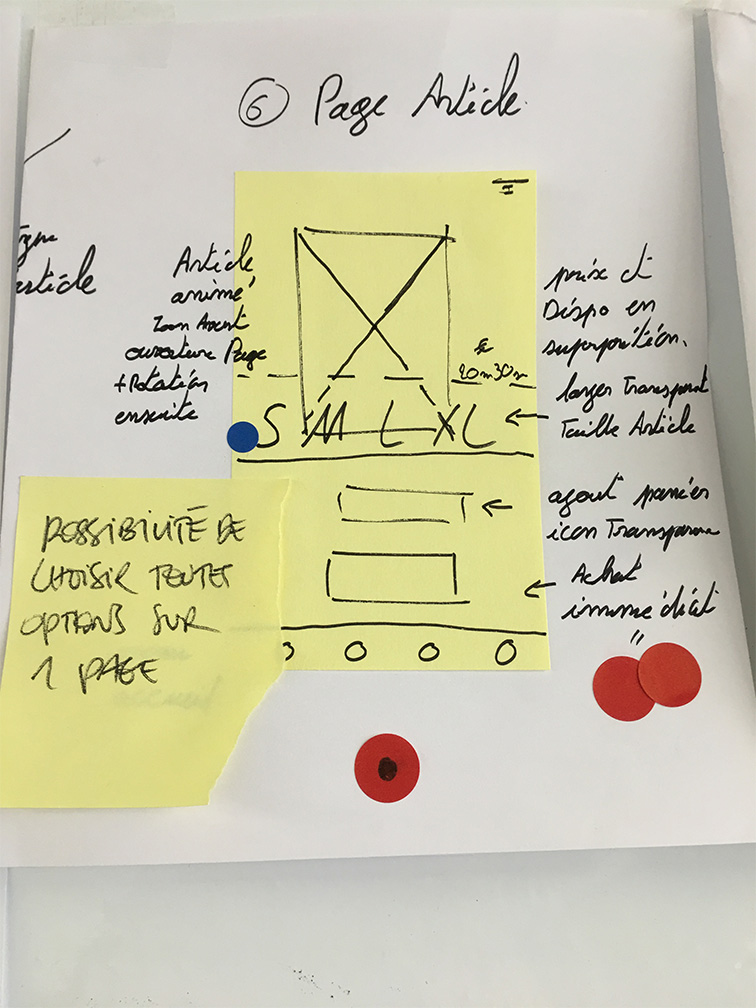 6 Page Article
article
Article
animé
Zoom Avant
ouverture Page
+ Rotation
ensuite
prix et
Dispo en
superposition.
20m30s
S M L XL
larger Transparent
Taille Article
ajout panier
icon Transparence
Achat
immédiat
"
POSSIBILITÉ DE
CHOISIR TOUTES
OPTIONS SUR
1 PAGE